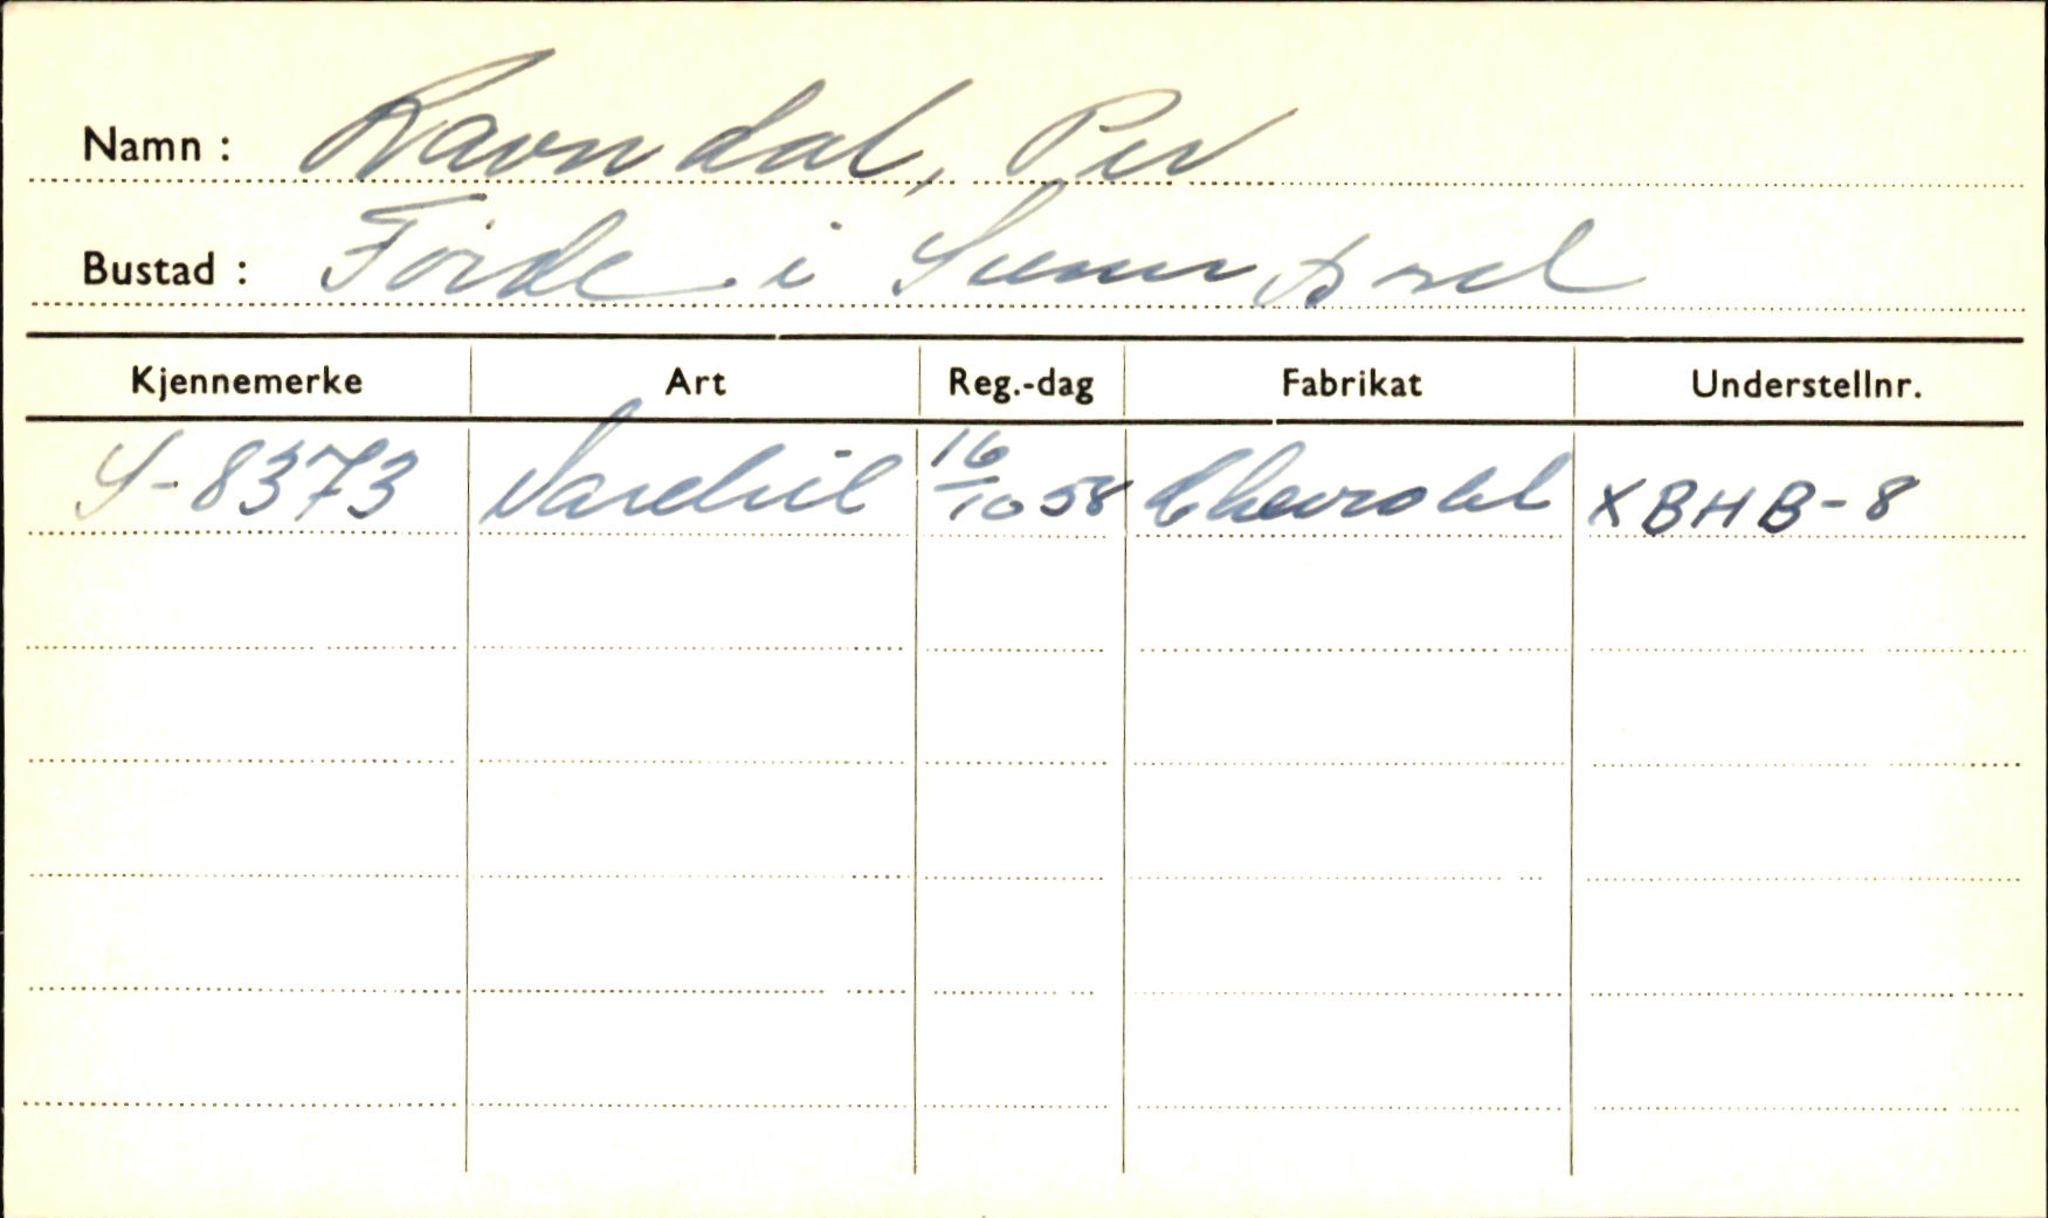 Namn : Ravndal, Per
Bustad : Førde i Sunnfjord
Kjennemerke Art Reg.-dag Fabrikat Understellnr.
S-8373 Varebil 16/10 58 Chevrolet XBHB-8